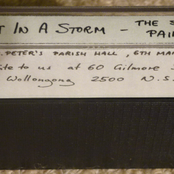 T IN A STORM - THE S
PAI
PETER'S PARISH HALL, 6TH MA
te to us at 60 Gilmore
Wollongong 2500 N.S.